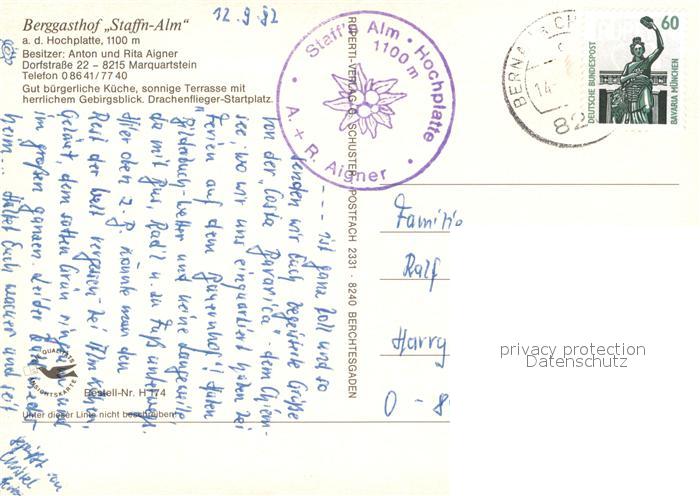 Berggasthof „Staffn-Alm"
a. d. Hochplatte, 1100 m
Besitzer: Anton und Rita Aigner
Dorfstraße 22 – 8215 Marquartstein
Telefon 0 86 41 / 77 40
Gut bürgerliche Küche, sonnige Terrasse mit
herrlichem Gebirgsblick. Drachenflieger-Startplatz.
12.9.92
Staff'n Alm · Hochplatte
1100 m
A. + R. Aigner
BERNAU A. CH
14
82
60
DEUTSCHE BUNDESPOST
BAVARIA MÜNCHEN
RUPERTI-VERLAG G. SCHUSTER · POSTFACH 2331 · 8240 BERCHTESGADEN
ist ganz toll und so
senden wir Euch begeisterte Grüße
von der „Costa Bavarica" - dem Chiem-
see, wo wir uns einquartiert haben bei
Ferien auf dem Bauernhof! Haben
Bilderbuch-Wetter und keine Langeweile,
da mit Bus, Rad'l u. zu Fuß unterwegs.
Hier oben z. B. könnte man den
Rest der Welt vergessen - bei Alm
Geläut, dem satten Grün ringsum und
im großen ganzen. Leider
heim... Haltet Euch wacker und seid
gegrüßt von
Familie
Ralf
Harry
O - 8
QUALITÄTS
ANSICHTSKARTE
Bestell-Nr. H 174
Unter dieser Linie nicht beschreiben!
privacy protection
Datenschutz